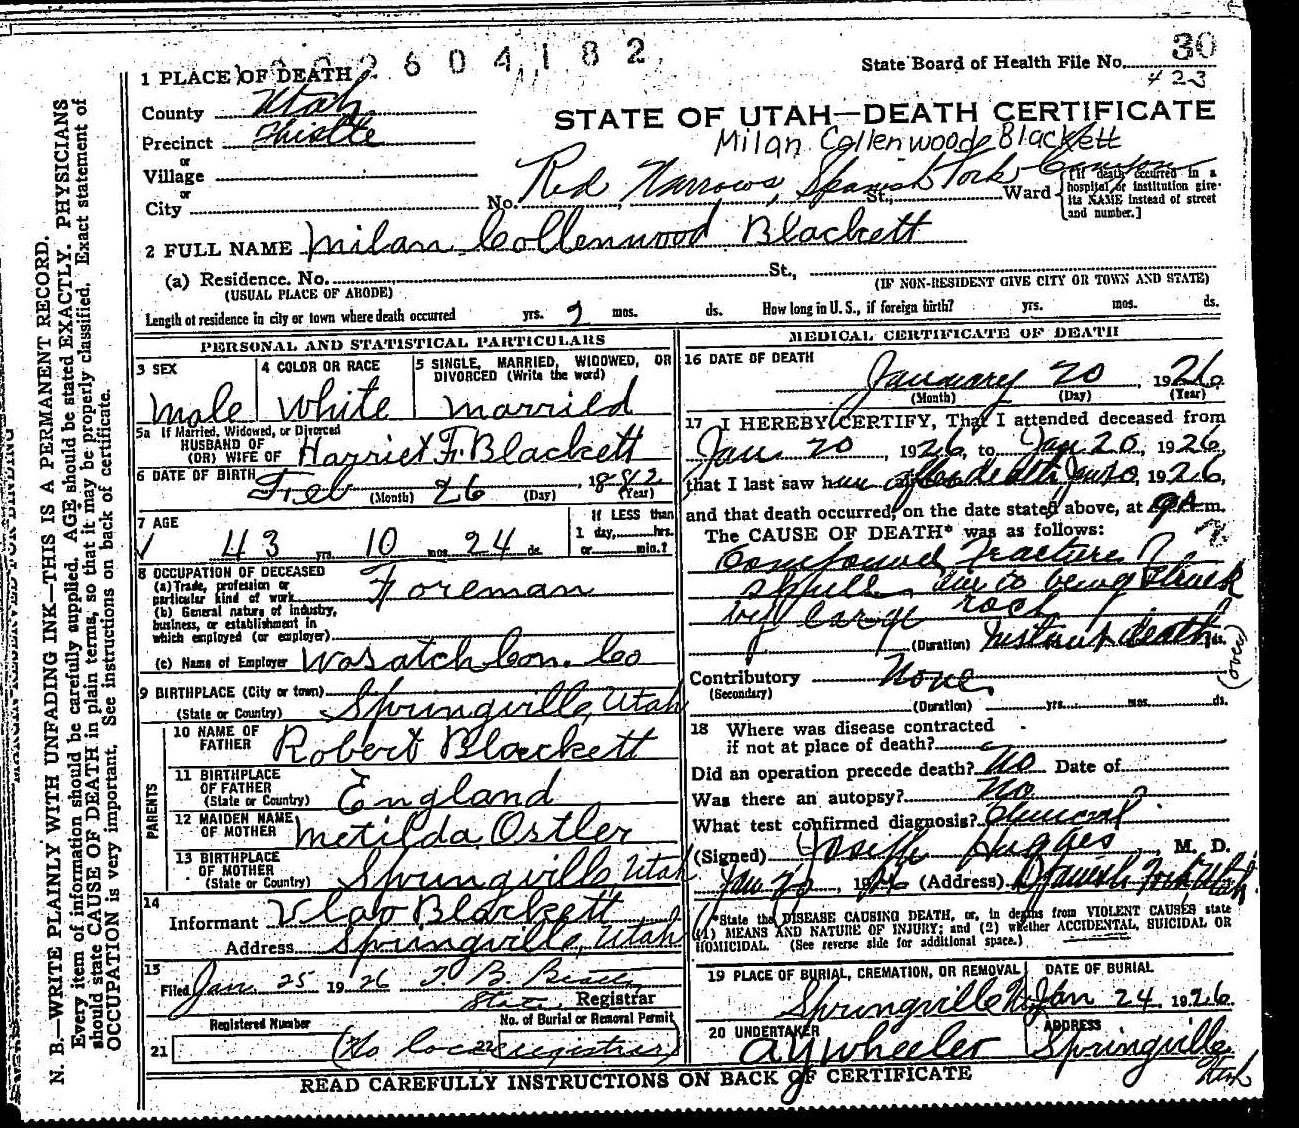 2604182
State Board of Health File No. 30
423
1 PLACE OF DEATH
STATE OF UTAH—DEATH CERTIFICATE
County Utah
Precinct Thistle
Milan Collenwoode Blackett
or
Village
or
City
No. Red Narrows, Spanish Fork Canyon St., Ward
[If death occurred in a hospital or institution give its NAME instead of street and number.]
2 FULL NAME Milan Collenwood Blackett
(a) Residence. No. St.,
(USUAL PLACE OF ABODE)
(IF NON-RESIDENT GIVE CITY OR TOWN AND STATE)
Length of residence in city or town where death occurred yrs. 2 mos. ds. How long in U. S., if foreign birth? yrs. mos. ds.
PERSONAL AND STATISTICAL PARTICULARS
3 SEX
Male
4 COLOR OR RACE
White
5 SINGLE, MARRIED, WIDOWED, OR DIVORCED (Write the word)
Married
5a If Married, Widowed, or Divorced
HUSBAND OF
(OR) WIFE OF Harriet F. Blackett
6 DATE OF BIRTH Feb 26, 1882
(Month) (Day) (Year)
7 AGE
43 yrs. 10 mos. 24 ds.
If LESS than
1 day, hrs.
or min.?
8 OCCUPATION OF DECEASED
(a) Trade, profession or
particular kind of work Foreman
(b) General nature of industry,
business, or establishment in
which employed (or employer)
(c) Name of Employer Wasatch Con. Co
9 BIRTHPLACE (City or town)
(State or Country) Springville, Utah
PARENTS
10 NAME OF
FATHER Robert Blackett
11 BIRTHPLACE
OF FATHER
(State or Country) England
12 MAIDEN NAME
OF MOTHER Metilda Ostler
13 BIRTHPLACE
OF MOTHER
(State or Country) Springville Utah
14
Informant Blackett
Address Springville, Utah
15
Filed Jan. 25 1926 T. B. Beatty
State Registrar
Registered Number
No. of Burial or Removal Permit
21 22
(No local registrar)
MEDICAL CERTIFICATE OF DEATH
16 DATE OF DEATH
January 20, 1926
(Month) (Day) (Year)
17 I HEREBY CERTIFY, That I attended deceased from
Jan. 20, 1926, to Jan 20, 1926,
that I last saw him after death Jan 20, 1926,
and that death occurred, on the date stated above, at m.
The CAUSE OF DEATH* was as follows:
Compound Fracture
skull due to being struck
by large rock
(Duration) Instant death ds.
(over)
Contributory None
(Secondary)
(Duration) yrs. mos. ds.
18 Where was disease contracted
if not at place of death?
Did an operation precede death? No Date of
Was there an autopsy? No
What test confirmed diagnosis?
(Signed) Joseph Hughes, M. D.
Jan 20, 1926 (Address) Spanish Fork Utah
(*State the DISEASE CAUSING DEATH, or, in deaths from VIOLENT CAUSES state
(1) MEANS AND NATURE OF INJURY; and (2) whether ACCIDENTAL, SUICIDAL OR
HOMICIDAL. (See reverse side for additional space.)
19 PLACE OF BURIAL, CREMATION, OR REMOVAL
Springville
DATE OF BURIAL
Jan 24. 1926.
20 UNDERTAKER
A Y Wheeler
ADDRESS
Springville
Utah
READ CAREFULLY INSTRUCTIONS ON BACK OF CERTIFICATE
N. B.—WRITE PLAINLY WITH UNFADING INK—THIS IS A PERMANENT RECORD.
Every item of information should be carefully supplied. AGE should be stated EXACTLY. PHYSICIANS
should state CAUSE OF DEATH in plain terms, so that it may be properly classified. Exact statement of
OCCUPATION is very important. See instructions on back of certificate.